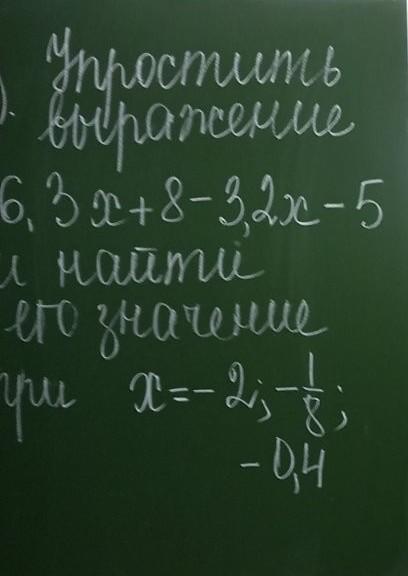 ). Упростить
выражение
6,3x+8-3,2x-5
и найти
его значение
при x=-2; -1/8;
-0,4